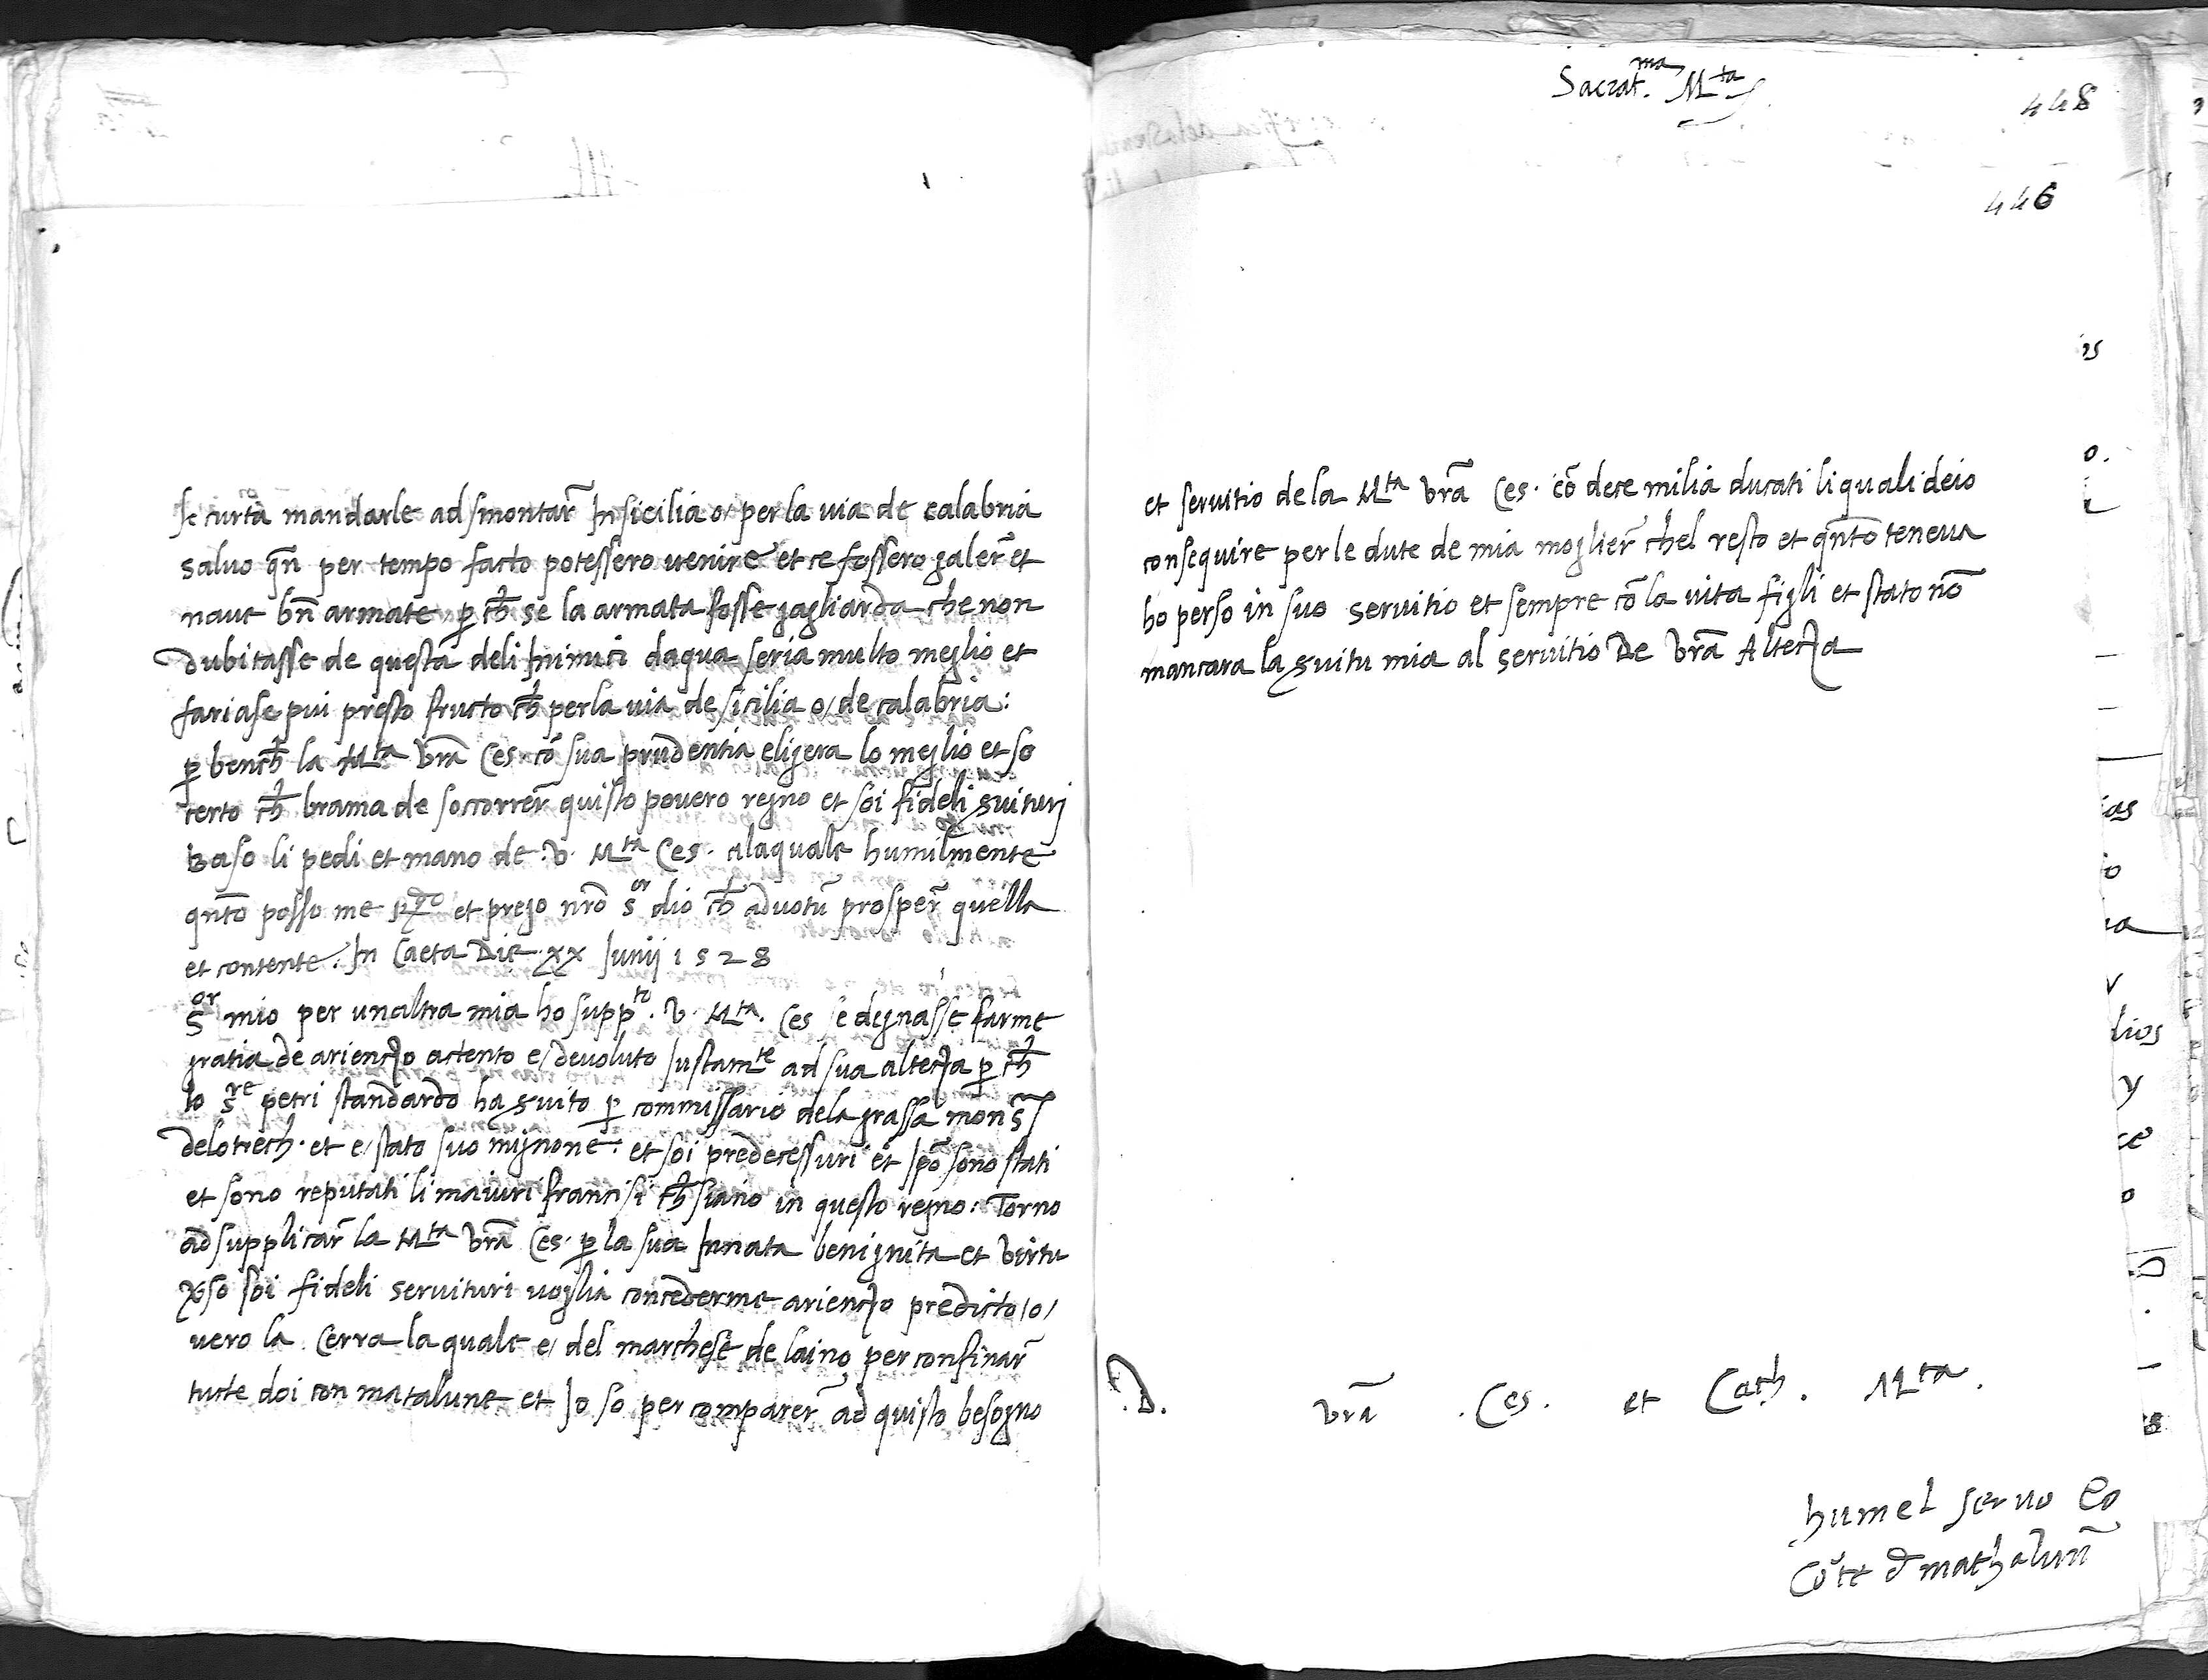 se curta mandarle ad smontar̃ In sicilia o/ per la uia de calabria
saluo qñ per tempo facto potessero uenire et ce fossero galer̃ et
naue bñ armate p ch̃ se la armata fosse gagliarda che non
dubitasse de questa deli Inimici daqua seria multo meglio et
fariase piu presto fructo ch̃ per la uia de sicilia o/ de calabria:
p bench̃ la Mta vrã Ces. cõ sua prudentia eligera lo meglio et so
certo ch̃ brama de soccorrer̃ quisto pouero regno et soi fideli suituri
Baso li pedi et mano de .v. Mta Ces. alaquale humilmente
qñto posso me et prego nrõ sor dio ch̃ ad uotũ prosper̃ quella
et contente. In Caeta Die xx Junij 1528
Sor mio per unaltra mia ho suppto. v. Mta. Ces se degnasse farme
gratia de arienczo actento e/ deuoluto Justamte ad sua altecza p ch̃
lo sre petri standardo ha suito p commissario dela grassa mons
delotrech. et e/ stato suo mignone: et soi predecessuri et Ipõ sono stati
et sono reputati li maiuri francisi ch̃ siano in questo regno: Torno
ad supplicar̃ la Mta vrã Ces. p la sua Innata benignita et virtu
so soi fideli seruituri uoglia concederme arienczo predicto /o/
uero la Cerra la quale e/ del marchese de laino per confinar̃
tucte doi con matalune et Io so per comparer̃ ad quisto besogno
Sacrat.ma Mta
448
446
et seruitio de la Mta vrã Ces. cõ dece milia ducati li quali deio
consequire per le dute de mia moglier̃ chel resto et qñto teneua
ho perso in suo seruitio et sempre cõ la uita figli et stato nõ
mancara la suitu mia al seruitio De vrã Altecza
.D. vrã .Ces. et Cath. Mta.
humel seruo Eo
Cõte d mathalun̄